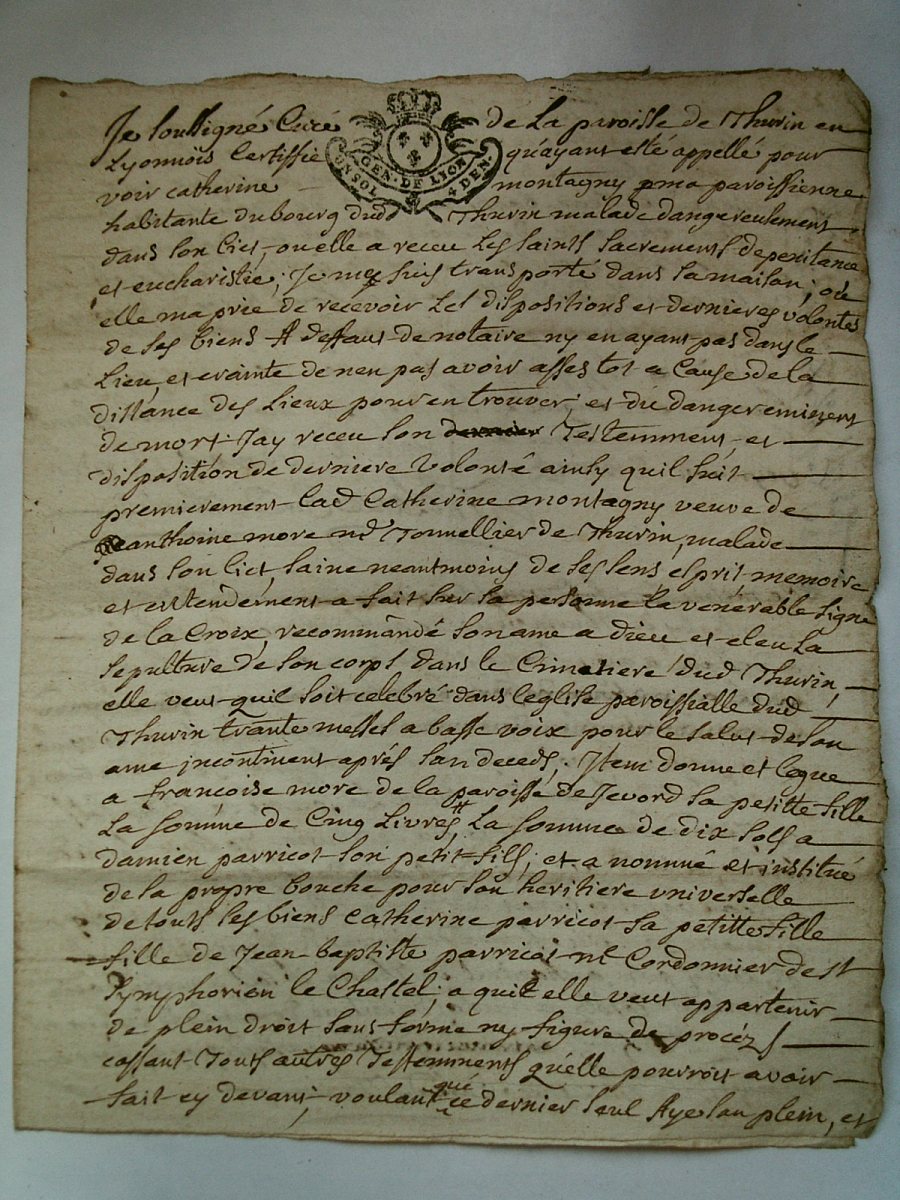 Je soussigné Curé de La paroisse de Thurin en
Lyonnois Certiffie qu'ayant esté appellé pour
GEN. DE LYON
UN SOL 4 DEN.
voir catherine montagny ma paroissienne
habitante du bourg dud Thurin malade dangereusement
dans son lict, ou elle a receu Les saints sacrements de penitance
et eucharistie; Je me suis transporté dans sa maison; ou
elle ma prie de recevoir ses dispositions et dernieres volontes
de ses biens A deffaut de notaire ny en ayant pas dans le
Lieu, et crainte de nen pas avoir asses tot a Cause de la
distance des Lieux pour en trouver, et du danger eminent
de mort Jay receu son dernier Testemment et
disposition de derniere volonté ainsy quil suit
premierement Lad Catherine montagny veuve de
anthoine more md Tonnellier de Thurin, malade
dans son lict, saine neantmoins de ses sens esprit memoire
et entendement a fait sur sa personne la venerable signe
de la Croix, recommandé son ame a dieu et eleu La
sepulture de son corps dans le Cimetiere dud Thurin,
elle veut quil soit celebré dans leglise paroissialle dud
Thurin trante messes a basse voix pour le salut de son
ame incontinent aprés son deceds; Item donne et legue
a francoise more de la paroisse de Jevord sa petitte fille
La somme de Cinq Livres tt, La somme de dix sols a
damien parricot son petit fils; et a nommé et institué
de sa propre bouche pour son heritiere universelle
de touts ses biens Catherine parricot sa petitte fille
fille de Jean-baptiste parricot md Cordonnier de st
symphorien le Chastel; a qui elle veut appartenir
de plein droit sans forme ny figure de procéz
cassant Touts autres Testemments quelle pourroit avoir
fait cy devant, voulant que ce dernier seul Aye son plein, et